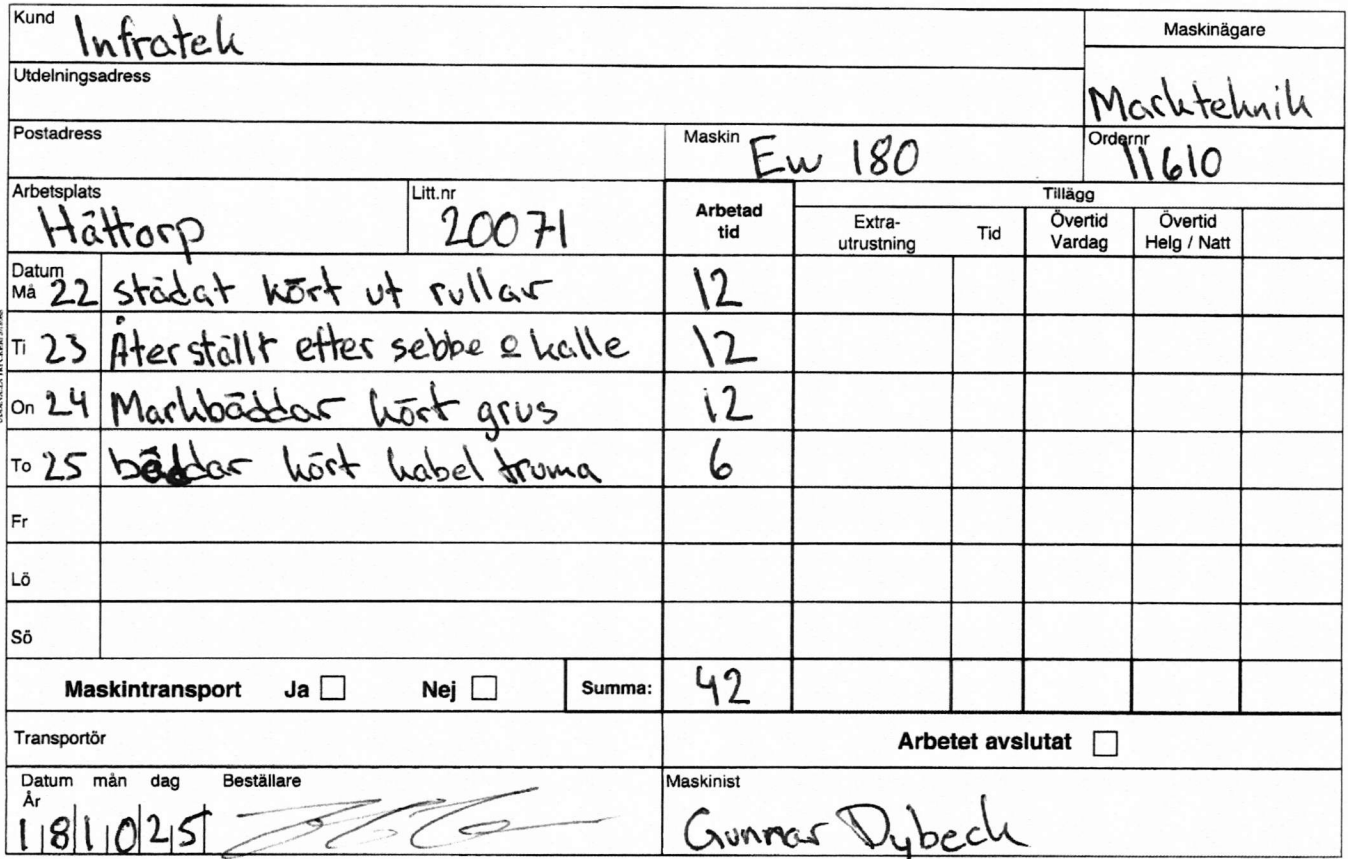 Kund Infratek
Maskinägare
Utdelningsadress
Markteknik
Postadress
Maskin Ew 180
Ordernr 11610
Arbetsplats Hättorp
Litt.nr 20071
Arbetad tid
Tillägg
Extra-utrustning
Tid
Övertid Vardag
Övertid Helg / Natt
Datum
Må 22 städat kört ut rullar 12
Ti 23 Återställt efter sebbe o kalle 12
On 24 Markbäddar kört grus 12
To 25 bäddar kört kabel truma 6
Fr
Lö
Sö
Maskintransport Ja Nej Summa: 42
Transportör
Arbetet avslutat
Datum mån dag
År
181025
Beställare
Maskinist
Gunnar Dybeck